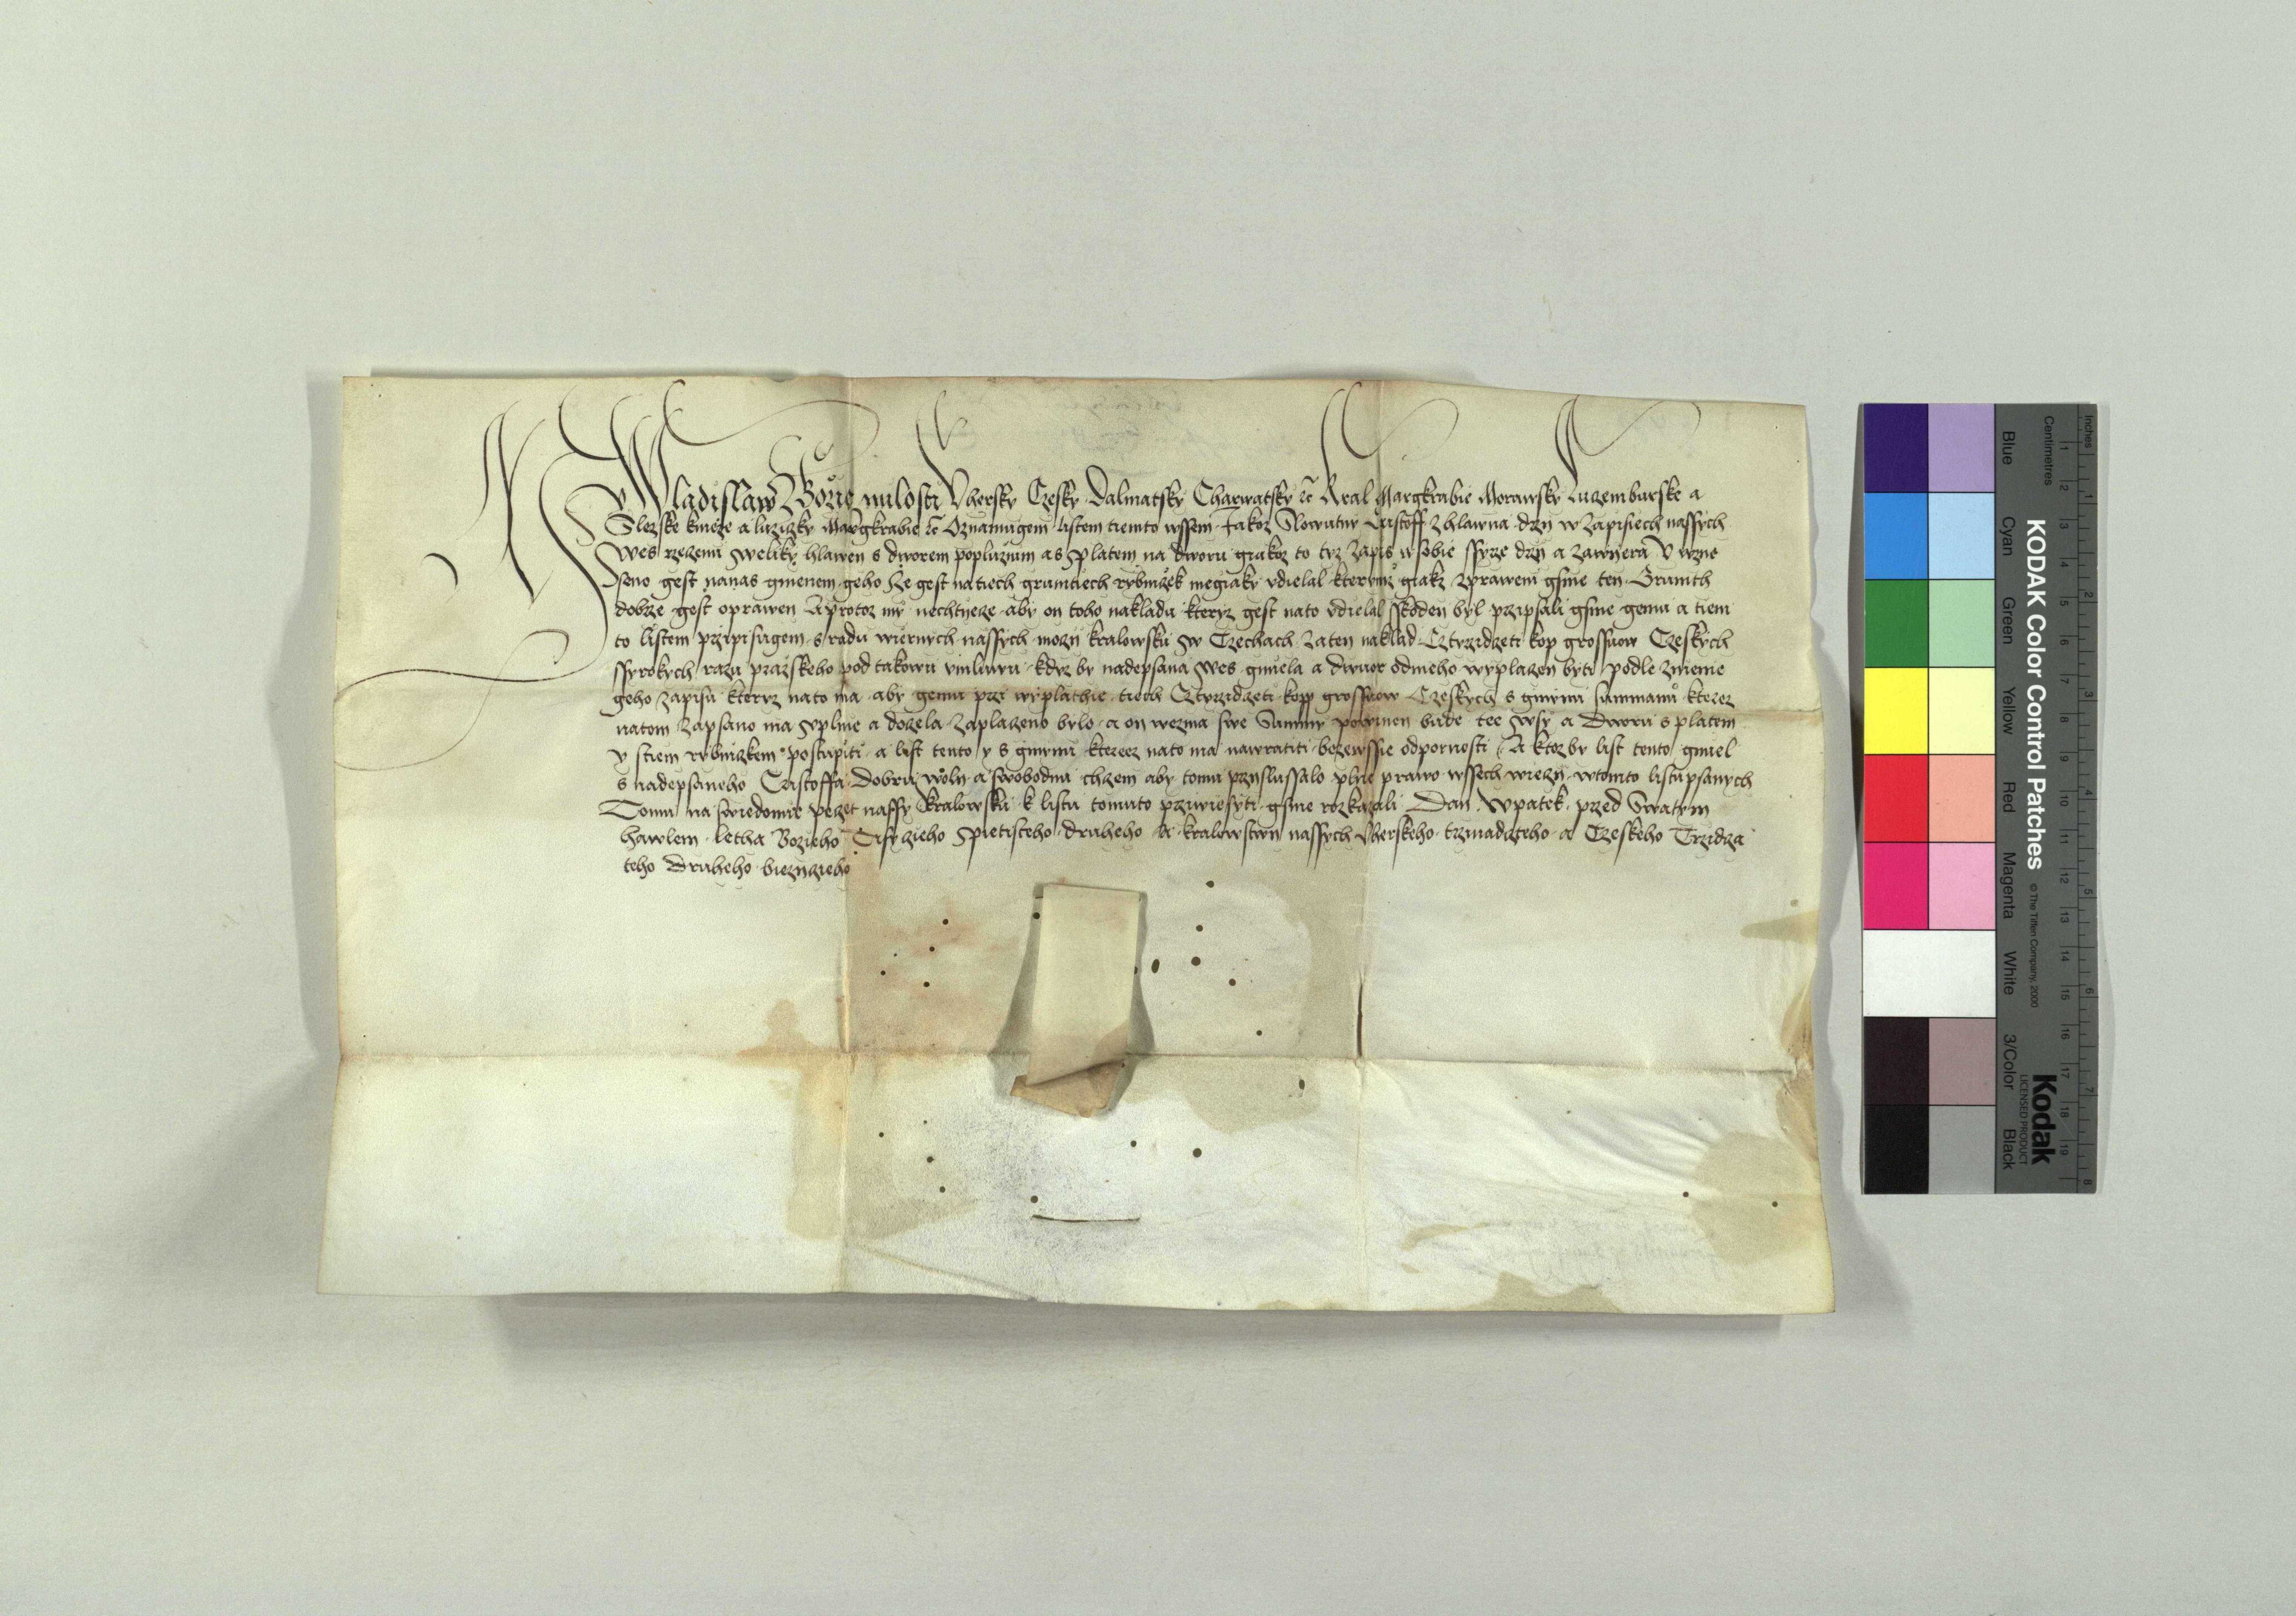 My Wladislaw Bozie milosti Vhersky Czesky Dalmatsky Charwatsky zc Kral Margkrabie Morawsky Luzemburske a
Slezske knieze a luzizky Margkrabie zc Oznamugem listem tiemto wssem Jakoz Slowutny Cristoff z hlawna drzy w Zapisiech nassych
Wes rzezenu weliky hlawen s dworem popluznim a s platem na dworu giakoz to tyz zapis w sobie ssyrze drzy a zawyera V wzne
seno gest nanas gmenem geho ze gest na tiech gruntiech rybnizek niegiaky vdielal kterymz giakz zpraweni gsme ten Grunth
dobrze gest oprawen A protoz my nechtyeze aby on toho nakladu kteryz gest nato vdielal sskoden byl przipsali gsme gemu a tiem
to listem przipisugem s radu wiernych nassych mozy kralowsku w Czechach za ten naklad Cztyrzidzeti kop grossuow Czeskych
ssyrokych razu prazskeho pod takowu vmluwu kdyz by nadepsana wes gmiela a dwuor odnieho wyplazen byti podle znienie
geho zapisu kteryz nato ma aby gemu przi wyplathie tiech Cztyrzidzeti kopp grossuow Czeskych s gmymi summami kterez
natom zapsano ma vplnie a dozela zaplazeno bylo a on wezma swe Summy powinen bude tee wsy a Dworu s platem
y stiem rybnizkem postupiti a list tento y s gmymi kterez nato ma nawratiti bezewssie odpornosti A ktoz by list tento gmiel
s nadepsaneho Cristoffa dobru woly a swobodnu chzem aby tomu przyslussalo plne prawo wssech wiezy wtomto listu psanych
Tomu na swiedomie pezet nassy kralowsku k listu tomuto przywiesyti gsme rozkazali Dan W patek przed Swatym
hawlem letha Bozieho Tisyzieho Pietisteho druheho A kralowstwy nassych Vherskeho trzinadzteho a Czeskeho Trzidza
teho Druheho biezyzieho
KODAK Color Control Patches
© The Tiffen Company, 2000
Kodak
LICENSED PRODUCT
Blue
Cyan
Green
Yellow
Red
Magenta
White
3/Color
Black
Inches
1 2 3 4 5 6 7 8
Centimetres
1 2 3 4 5 6 7 8 9 10 11 12 13 14 15 16 17 18 19